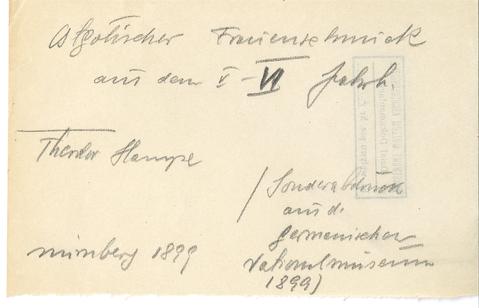 Ostgotischer Frauenschmuck
aus dem V-VI Jahrh.
Theodor Hampe
(Sonderabdruck
aus d.
germanischen
Nationalmuseum
1899)
Nürnberg 1899